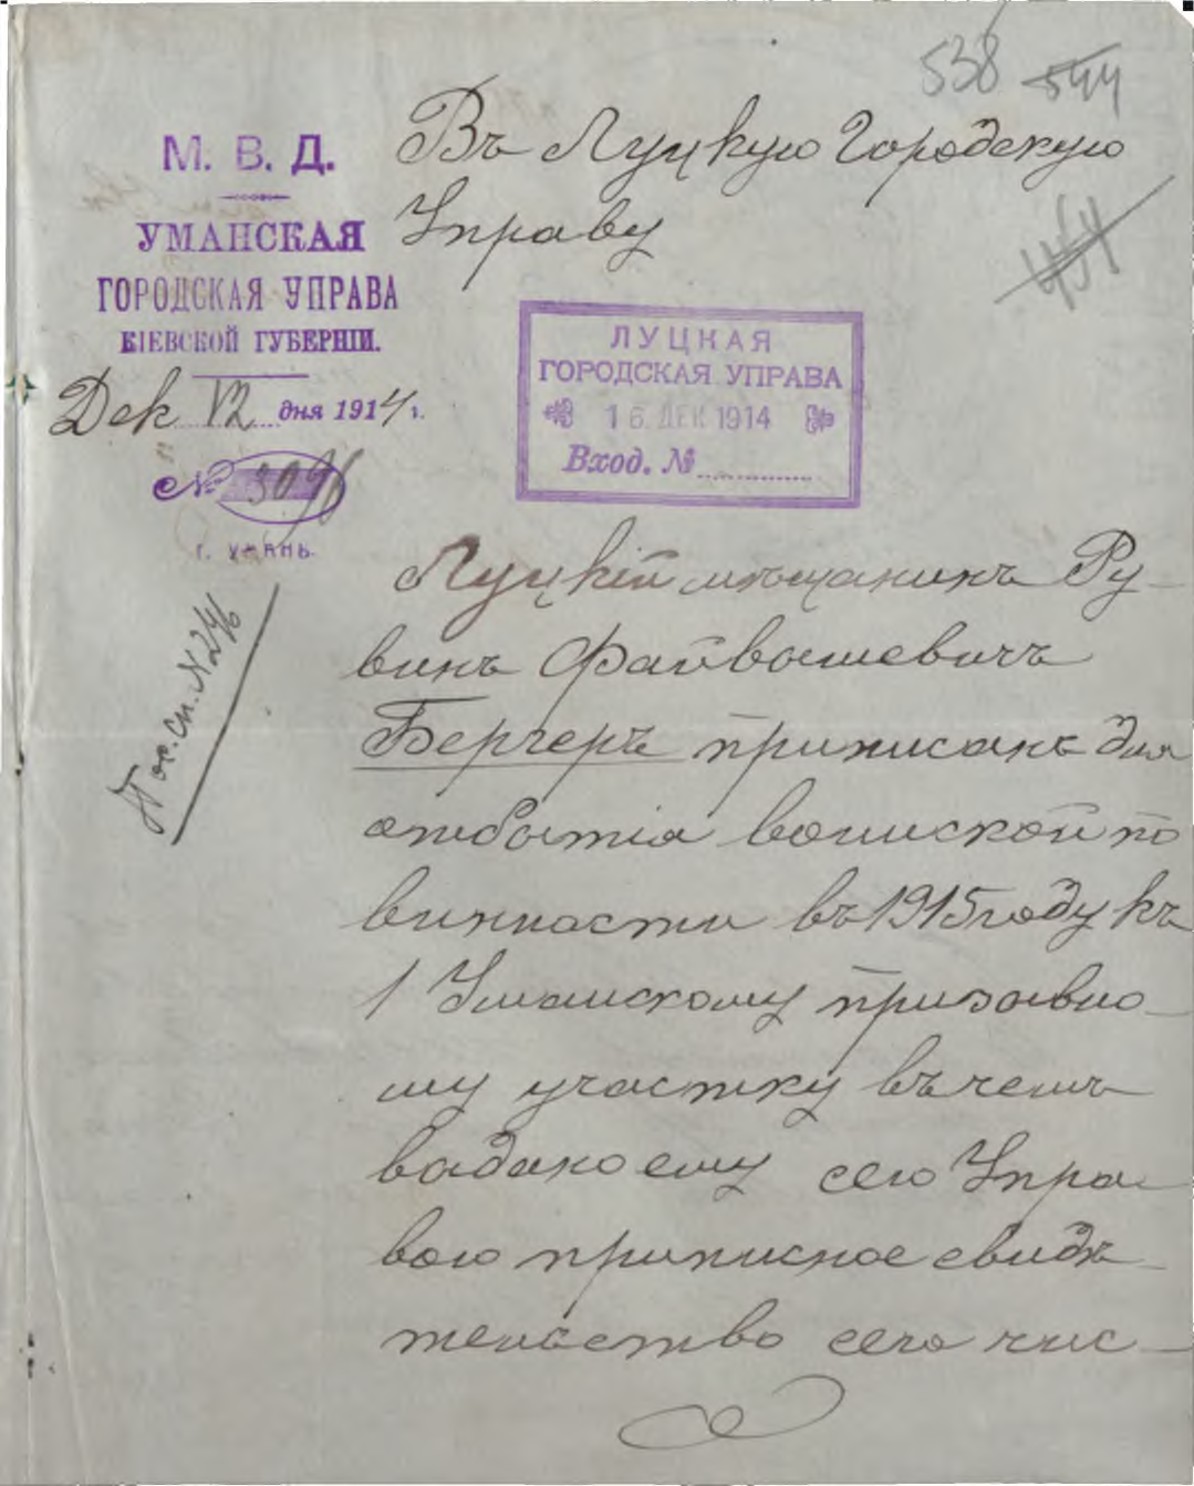 538 544
М. В. Д.
УМАНСКАЯ
ГОРОДСКАЯ УПРАВА
КІЕВСКОЙ ГУБЕРНІИ.
Дек 12 дня 1914 г.
№ 3096
г. УМАНЬ.
Въ Луцкую Городскую
Управу
454
ЛУЦКАЯ
ГОРОДСКАЯ УПРАВА
16. ДЕК 1914
Вход. №
Пос. сп. N 246
Луцкій мѣщанинъ Ру-
винъ Файвишевичъ
Бергеръ приписанъ для
отбытія воинской по
винности въ 1915 году къ
1 Уманскому призывно-
му участку въ чемъ
выдано ему сею Упра-
вою приписное свидѣ-
тельство сего чис-